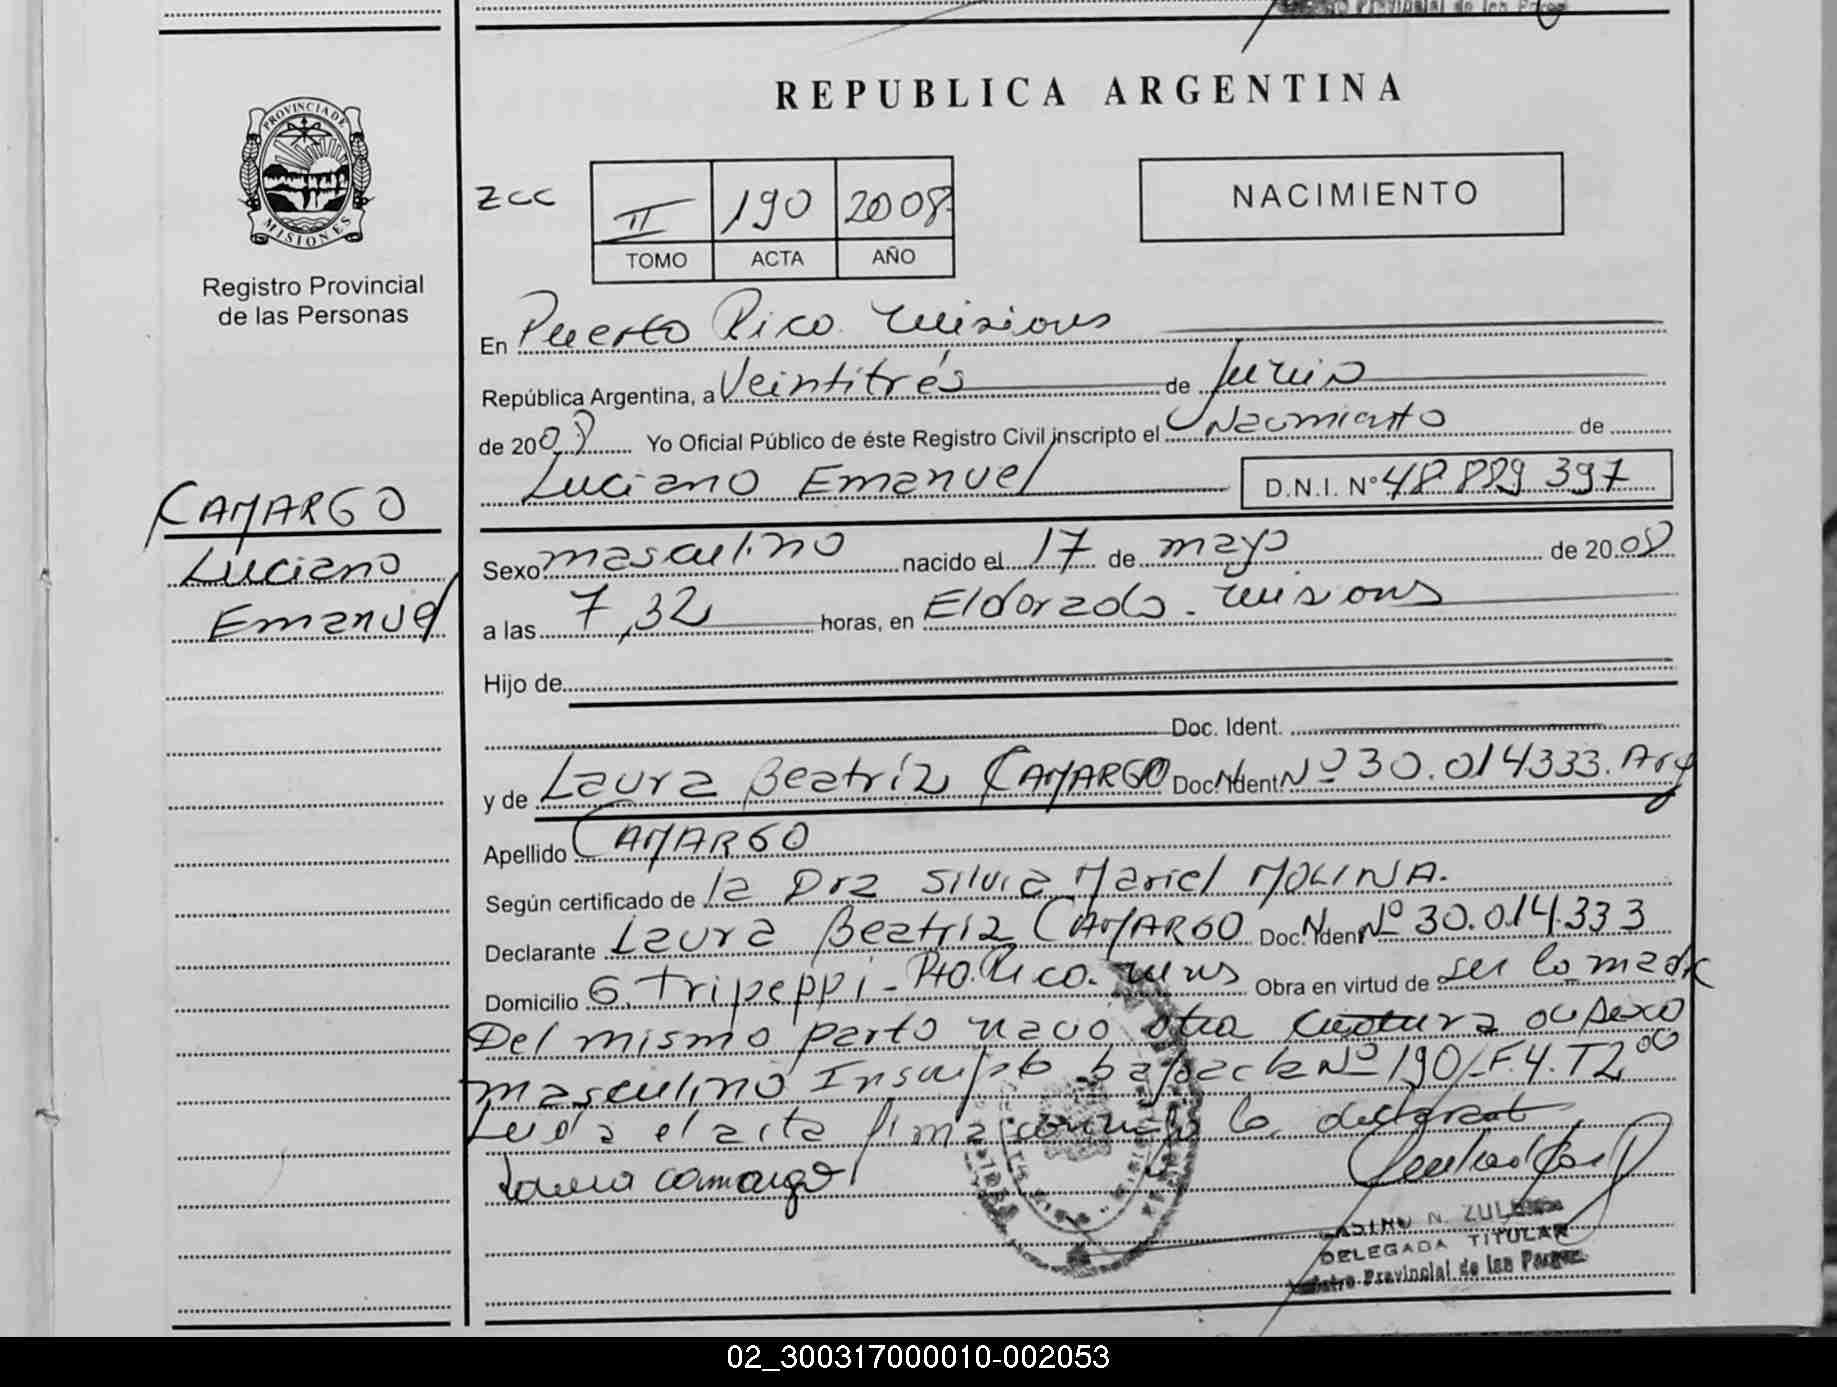 REPUBLICA ARGENTINA
PROVINCIA DE
MISIONES
Registro Provincial
de las Personas
zcc
II 190 2008
TOMO ACTA AÑO
NACIMIENTO
En Puerto Rico. Misiones
República Argentina, a Veintitrés de Junio
de 2008 Yo Oficial Público de éste Registro Civil inscripto el Nacimiento de
Luciano Emanuel D.N.I. Nº 48 889 397
CAMARGO
Luciano
Emanuel
Sexo masculino nacido el 17 de mayo de 2008
a las 7,32 horas, en Eldorado - Misiones
Hijo de
Doc. Ident.
y de Laura Beatríz CAMARGO Doc. Ident Nº 30.014333. Arg
Apellido CAMARGO
Según certificado de la Dra Silvia Mariel MOLINA.
Declarante Laura Beatríz CAMARGO Doc. Iden Nº 30.014.333
Domicilio G. Tripeppi - Pto. Rico. Mns Obra en virtud de ser la madre
Del mismo parto nació otra criatura de sexo
masculino Inscripto bajo acta Nº 190 F.4. T2
Leída el acta firma conmigo la declarante
Laura Camargo
DELEGADA TITULAR
Provincial de las
02_300317000010-002053